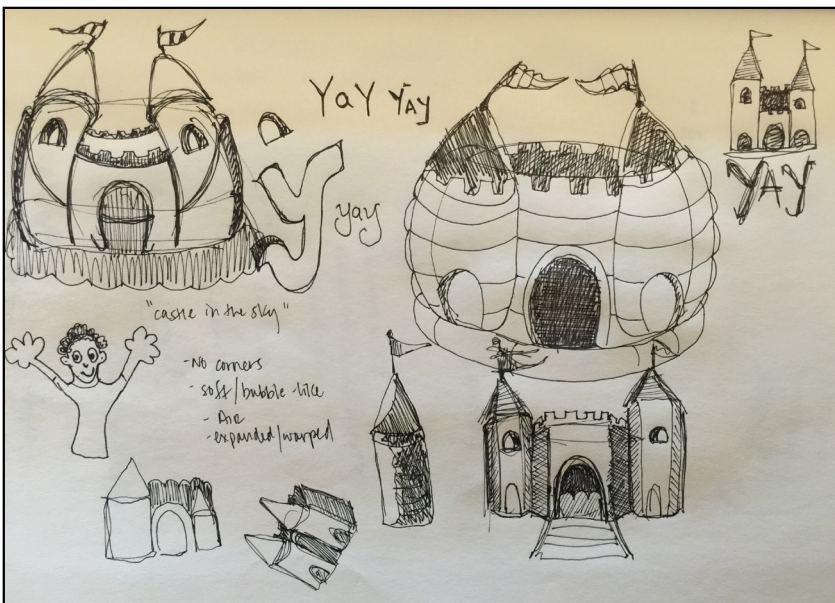 YaY YAY
y
yay
YAY
"castle in the sky"
-No corners
- soft/bubble-like
- Air
- expanded/warped